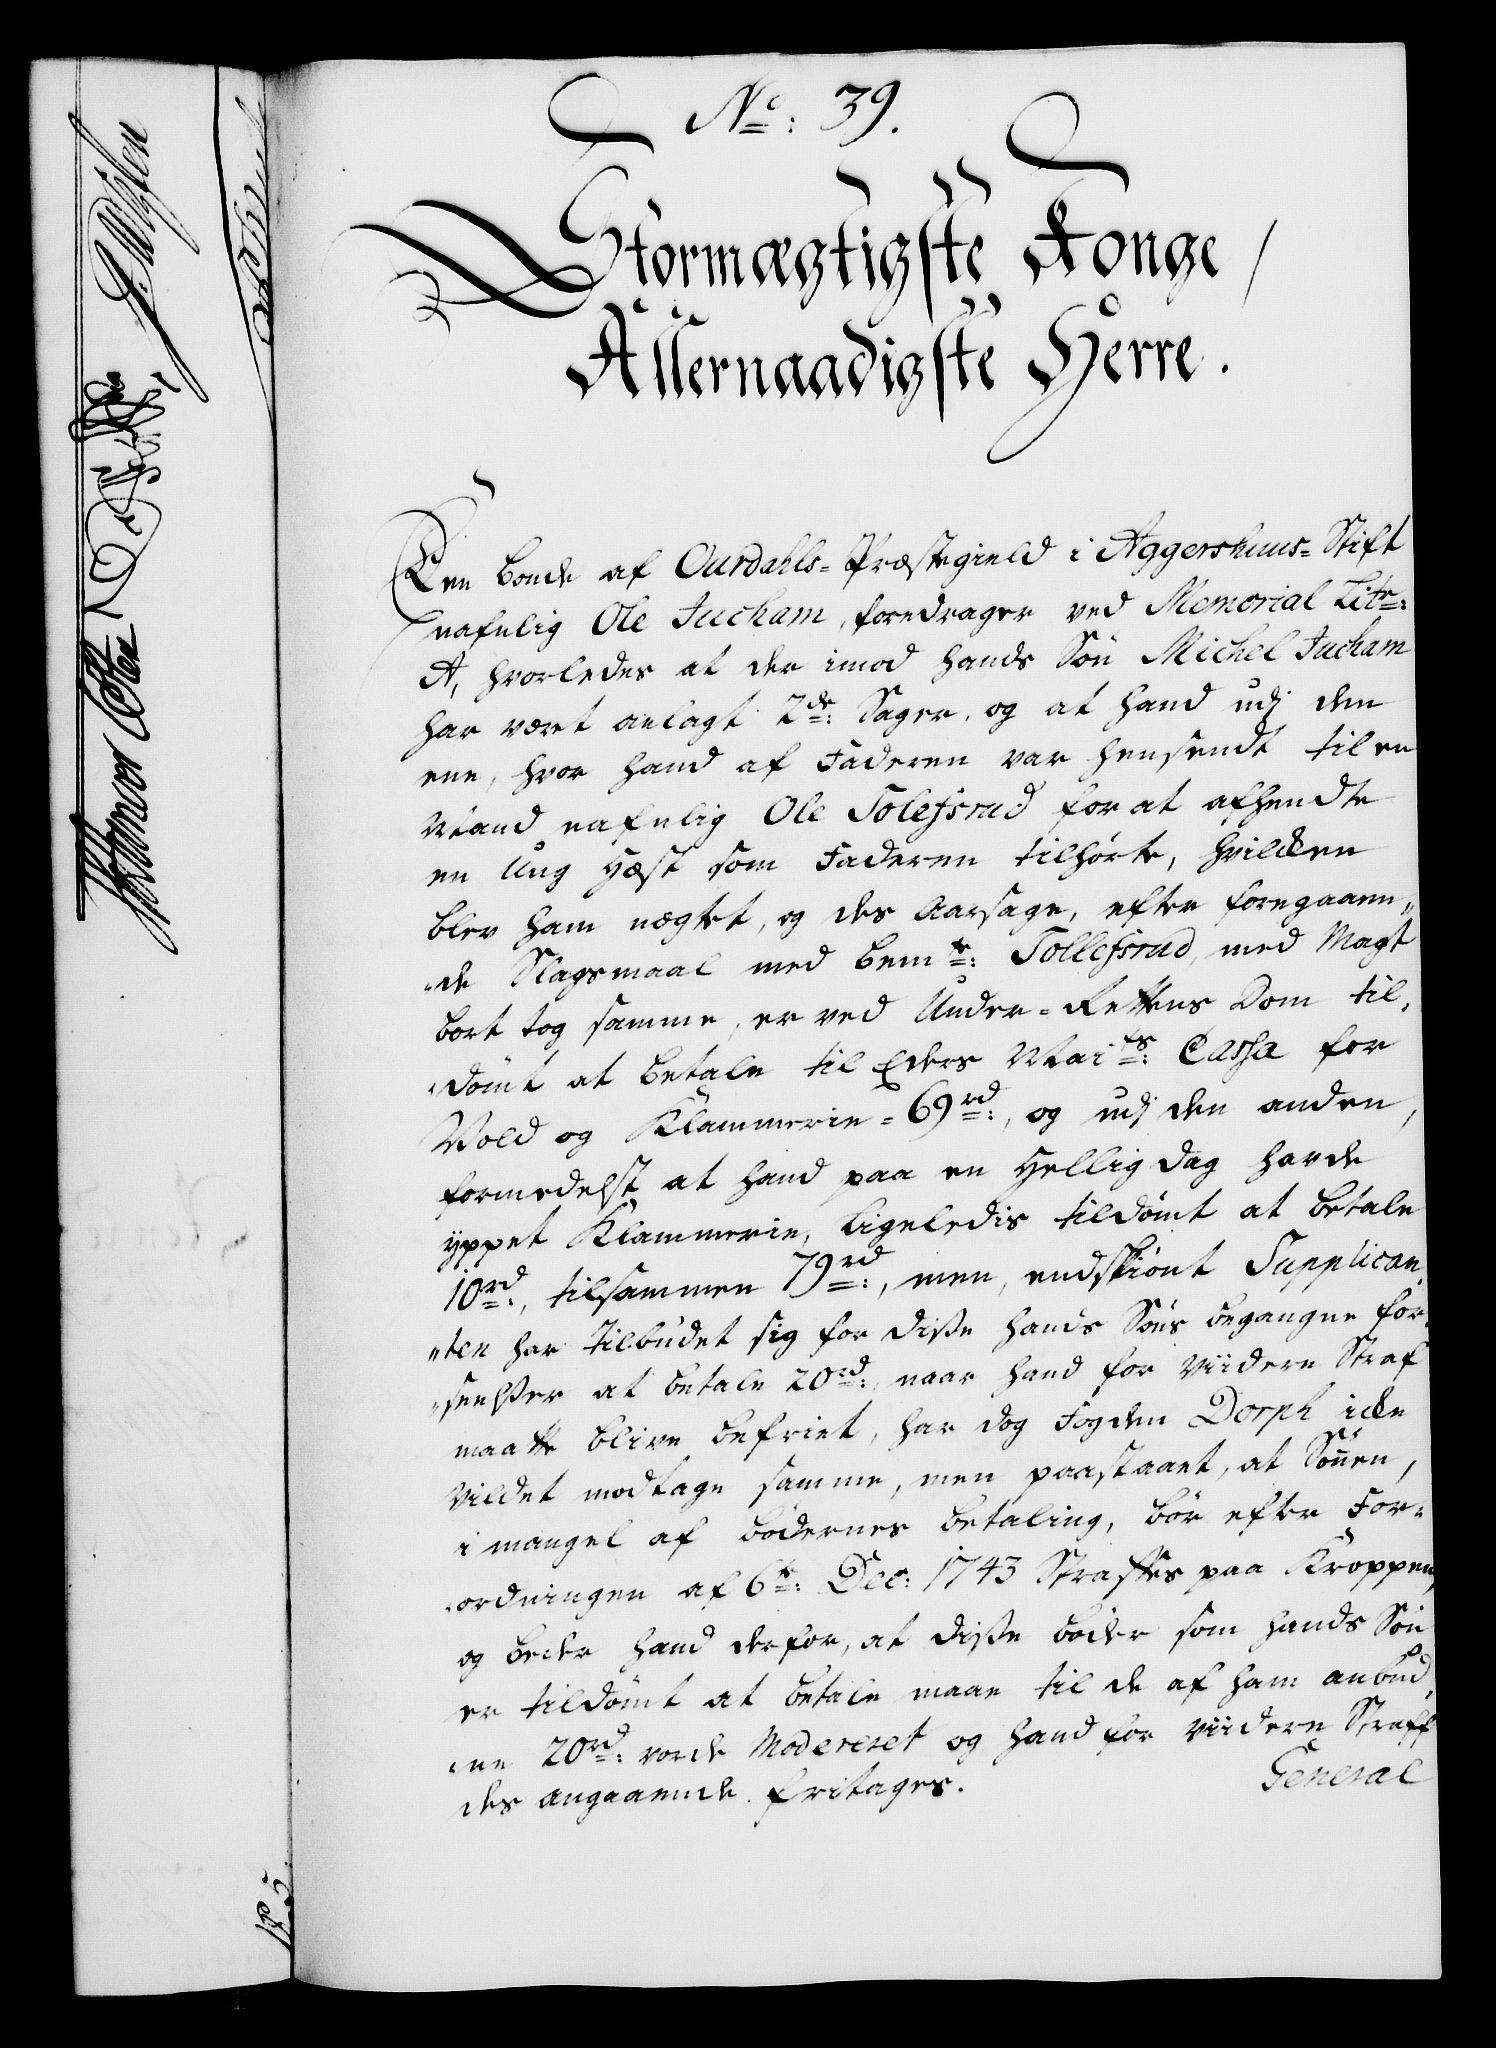 No: 39.
Stormægtigste Konge
Allernaadigste Herre.
Een bonde af Ourdahls-Præstegield i Aggershuus-Stift
nafnlig Ole Jucham, foredrager ved Memorial Litr:
A, hvorledes at der imod hands Søn Michel Jucham
har været anlagt 2de: Sager, og at hand udj den
ene, hvor hand af Faderen var hensendt til en
Mand nafnlig Ole Tolefsrud for at afhendte
en Ung Hæst som Faderen tilhørte, hvilcken
blev ham nægtet, og des Aarsage, efter foregaaen„
„de Slagsmaal med bemte: Tollefsrud, med Magt
bort tog samme, er ved Under-Rettens Dom til„
„dømt at betale til Eders Maits: Cassa for
Vold og Klammerie - 69rd:, og udj den anden,
formedelst at hand paa en Hellig dag havde
yppet Klammerie, ligeledis tildømt at betale
10rd:, tilsammen 79rd:, men, endskiønt Supplican„
„ten har tilbudet sig for disse hands Søns begangne for„
„seelser at betale 20rd:, naar hand for viidere Straf
maatte blive befriet, har dog Fogden Dorph icke
vildet modtage samme, men paastaaet, at Sønnen,
i mangel af bødernes betaling, bør efter For„
„ordningen af 6te: Dec: 1743 Straffes paa Kroppen,
og beder hand derfor, at disse bøder som hands Søn
er tildømt at betale maae til de af ham anbud„
„ne 20rd: vorde Modereret og hand for viidere Straff
des angaaende fritages.
General